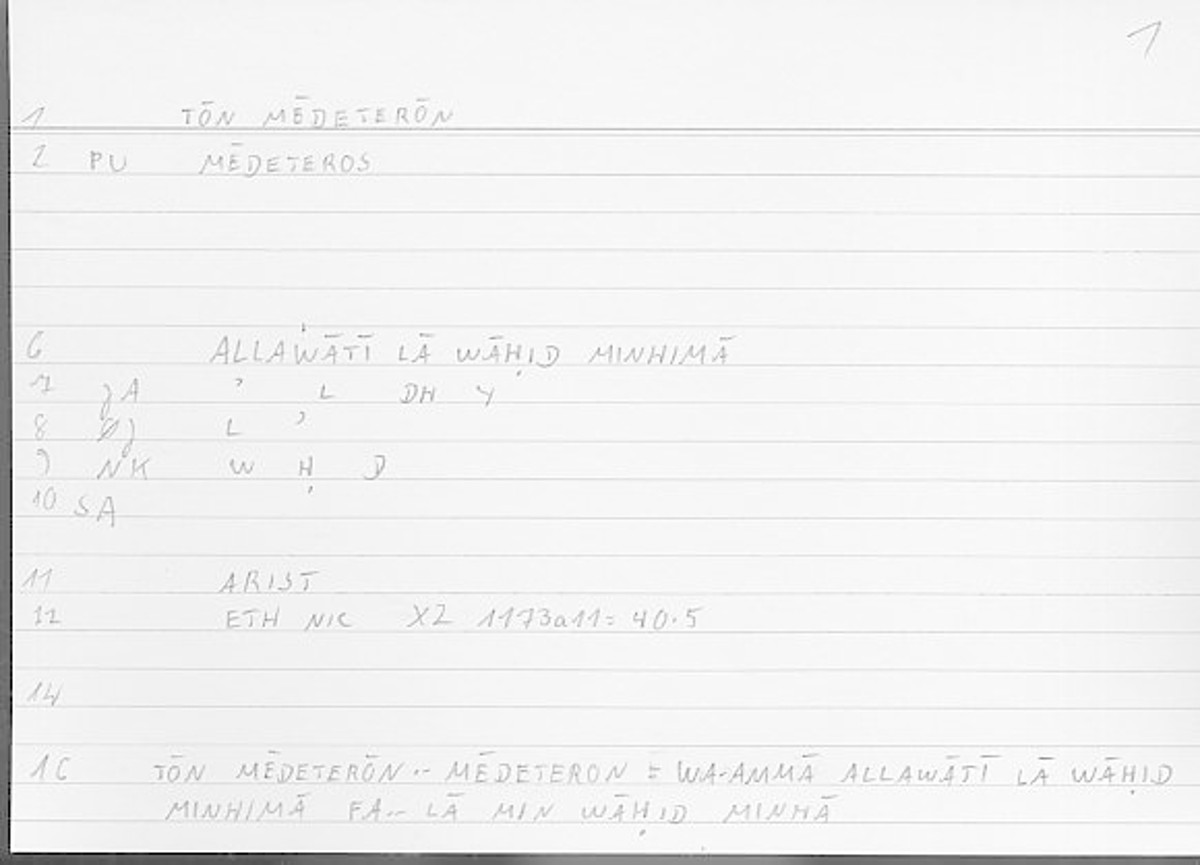 1
1 TŌN MĒDETERŌN
2 PU MĒDETEROS
6 ALLAWĀTĪ LĀ WĀḤID MINHIMĀ
7 ȝA ʾ L DH Y
8 Øȝ L ʾ
9 NK W Ḥ D
10 SA
11 ARIST
12 ETH NIC X2 1173a11= 40.5
14
16 TŌN MĒDETERŌN .. MĒDETERON = WA-AMMĀ ALLAWĀTĪ LĀ WĀḤID
MINHIMĀ FA.. LĀ MIN WĀḤID MINHĀ